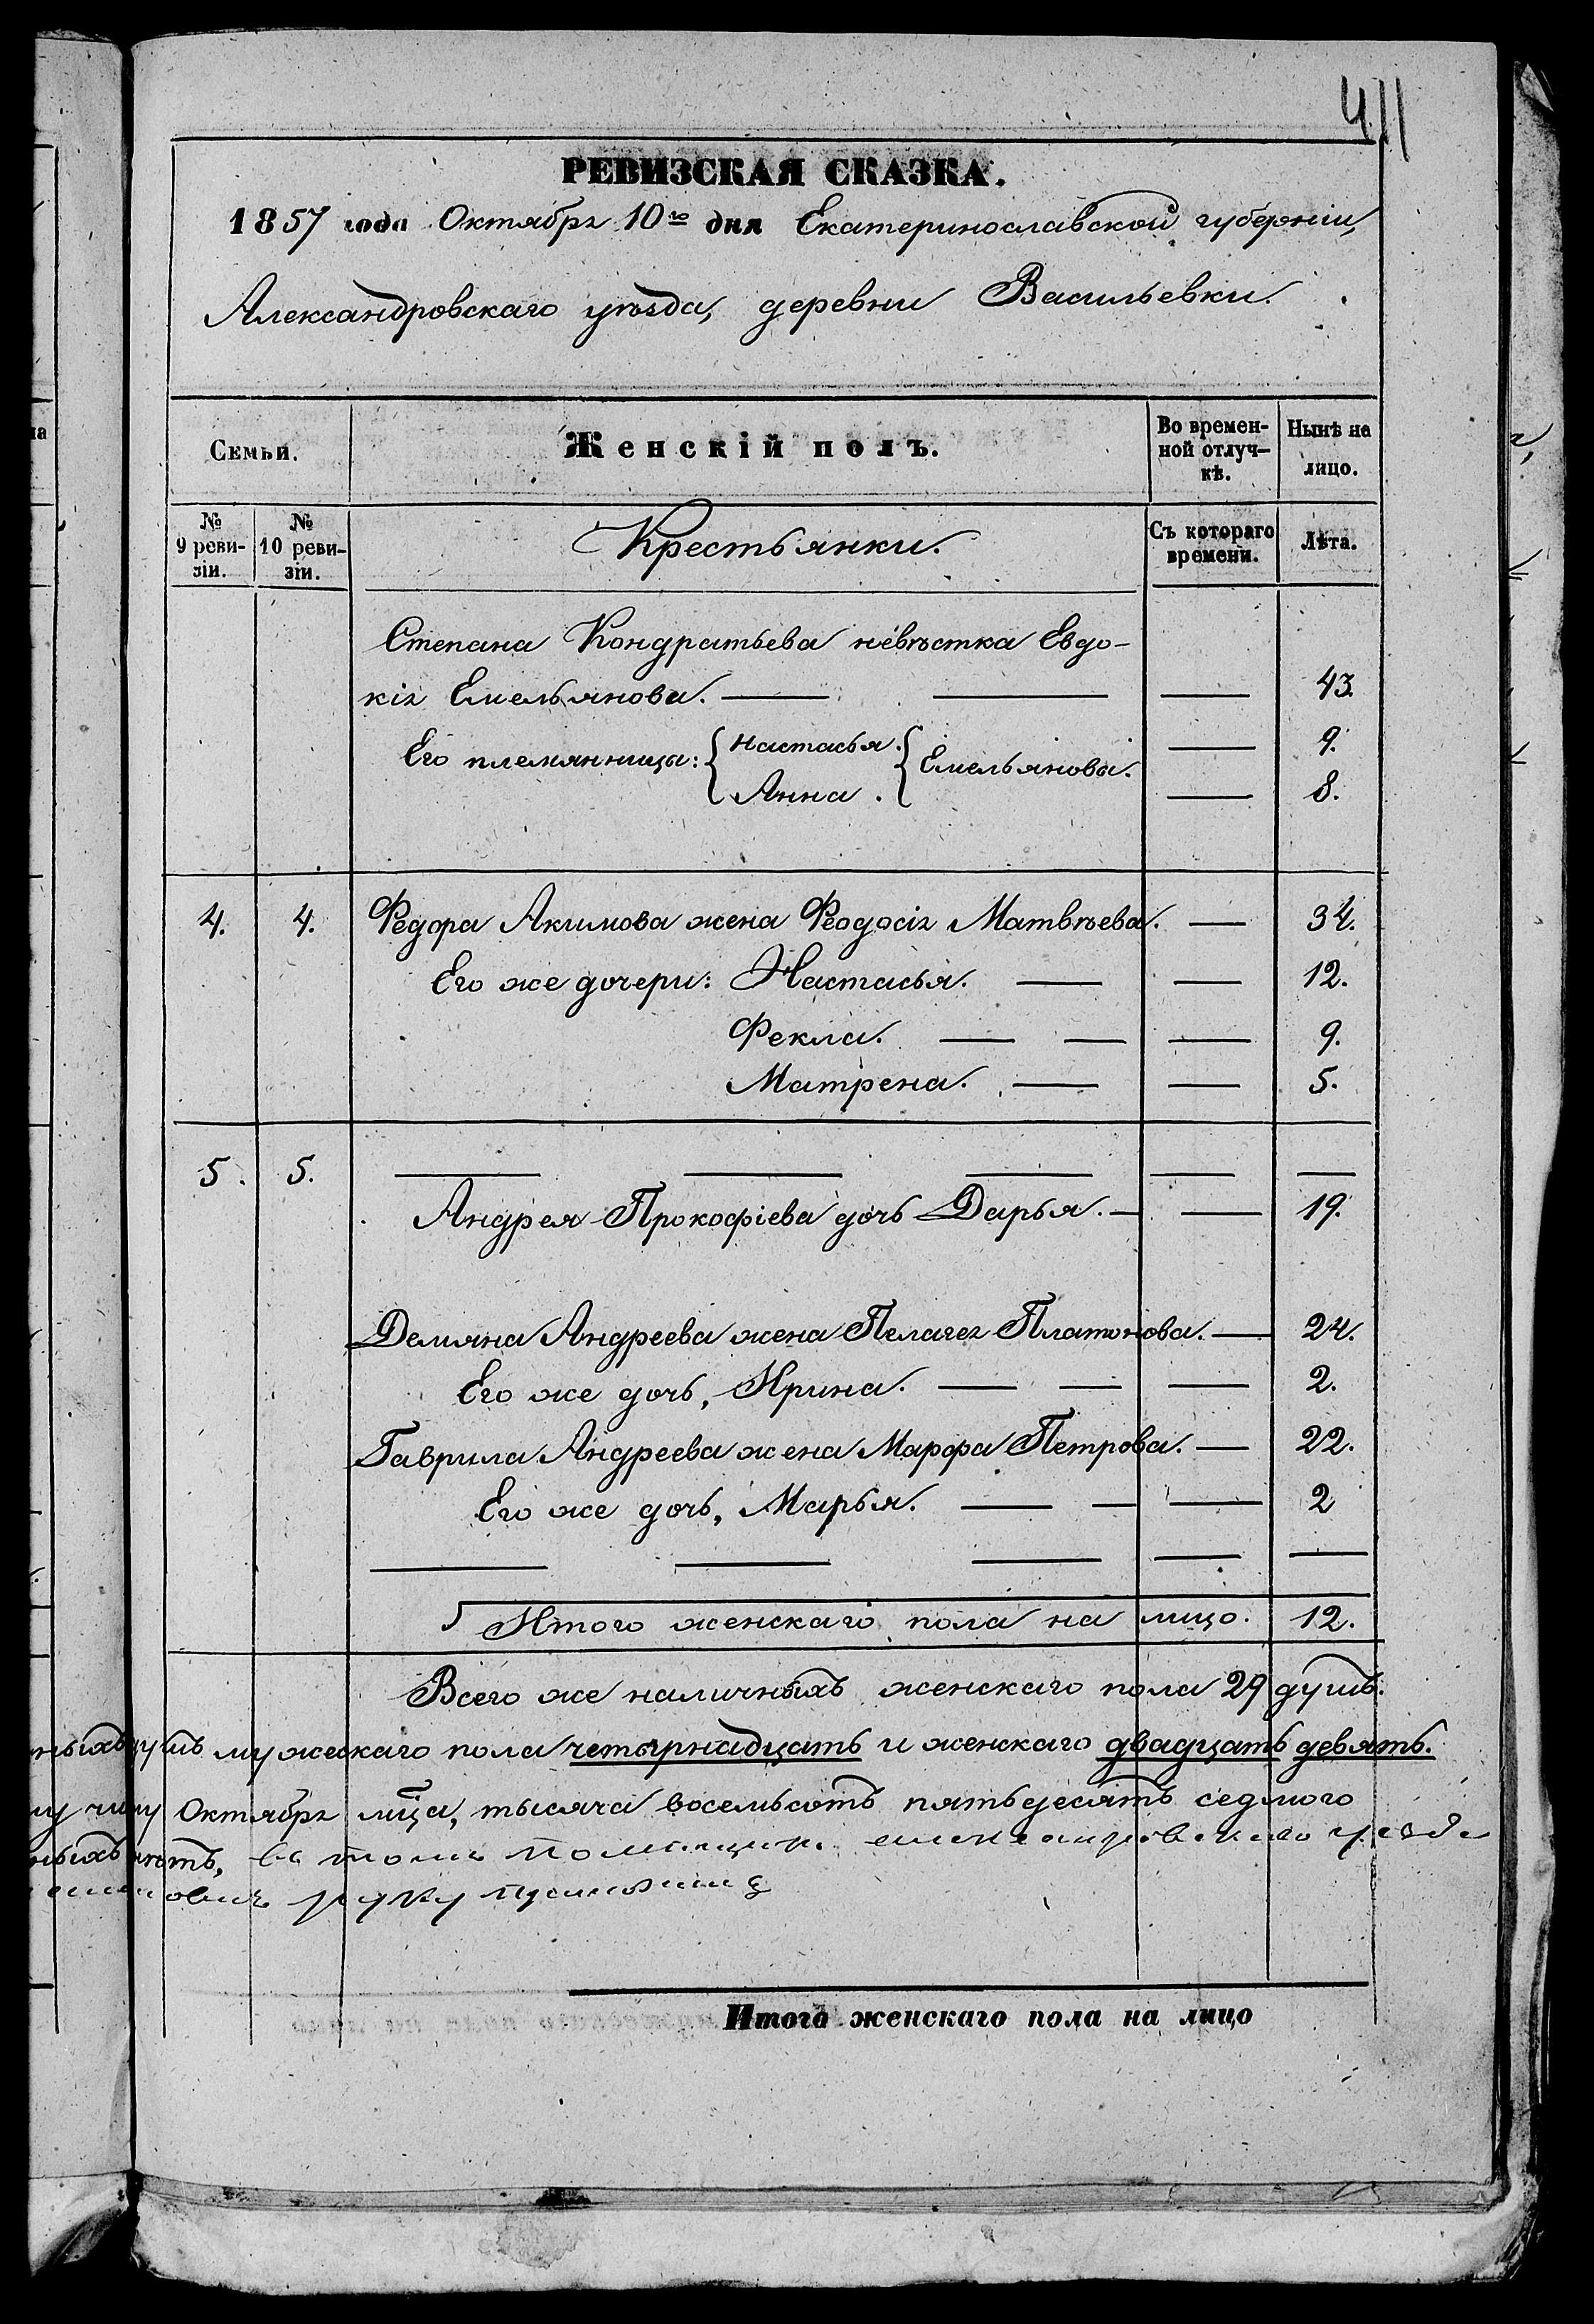 411
РЕВИЗСКАЯ СКАЗКА.
1857 года Октября 10го дня Екатеринославской губерніи,
Александровскаго уѣзда, деревни Васильевки.
Семьи.
Женскій полъ.
Во времен-
ной отлуч-
кѣ.
Нынѣ на
лицо.
№
9 реви-
зіи.
№
10 реви-
зіи.
Крестьянки.
Съ котораго
времени.
Лѣта.
Степана Кондратьева невѣстка Евдо-
кія Емельянова. 43.
Его племянницы: Настасья. Емельяновы. 9.
Анна. 8.
4. 4. Федора Акимова жена Феодосія Матвѣева. 34.
Его же дочери: Настасья. 12.
Фекла. 9.
Матрена. 5.
5. 5.
Андрея Прокофіева дочь Дарья. 19.
Демяна Андреева жена Пелагея Платонова. 24.
Его же дочь, Ирина. 2.
Гаврила Андреева жена Марфа Петрова. 22.
Его же дочь, Марья. 2
Итого женскаго пола на лицо. 12.
Всего же наличныхъ женскаго пола 29 душъ.
мужескаго пола четырнадцать и женскаго двадцать девять.
Октября мца, тысяча восемьсотъ пятьдесятъ седмого
въ томъ уезда
руку
Итого женскаго пола на лицо